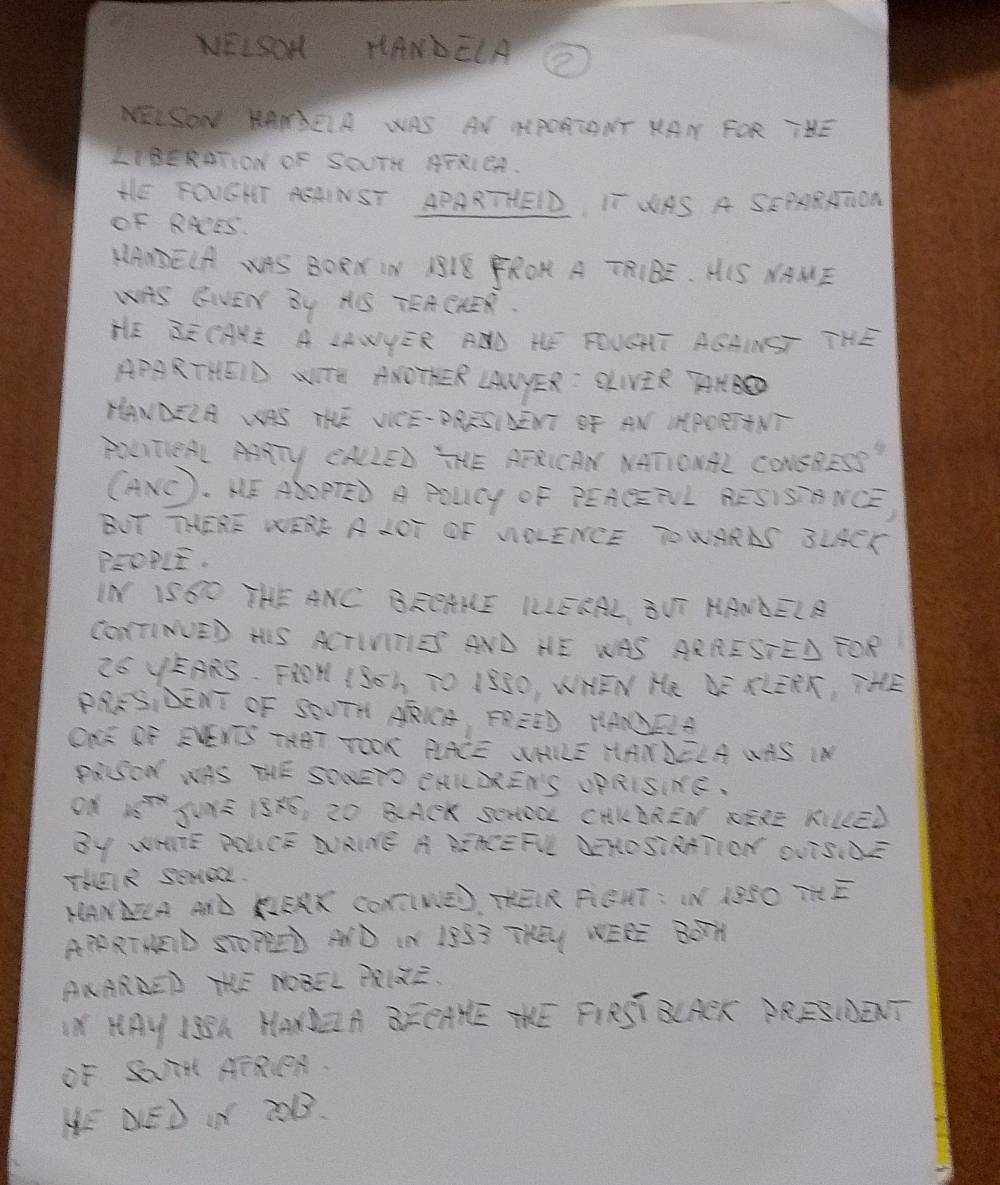 NELSON MANDELA 2
NELSON MANDELA WAS AN IMPORTANT MAN FOR THE
LIBERATION OF SOUTH AFRICA.
HE FOUGHT AGAINST APARTHEID, IT WAS A SEPARATION
OF RACES.
MANDELA WAS BORN IN 1918 FROM A TRIBE. HIS NAME
WAS GIVEN BY HIS TEACHER.
HE BECAME A LAWYER AND HE FOUGHT AGAINST THE
APARTHEID WITH ANOTHER LAWYER: OLIVER TAMBO
MANDELA WAS THE VICE-PRESIDENT OF AN IMPORTANT
POLITICAL PARTY CALLED "THE AFRICAN NATIONAL CONGRESS"
(ANC). HE ADOPTED A POLICY OF PEACEFUL RESISTANCE,
BUT THERE WERE A LOT OF VIOLENCE TOWARDS BLACK
PEOPLE.
IN 1960 THE ANC BECAME ILLEGAL, BUT MANDELA
CONTINUED HIS ACTIVITIES AND HE WAS ARRESTED FOR
26 YEARS. FROM 1964 TO 1990, WHEN MR DE KLERK, THE
PRESIDENT OF SOUTH AFRICA, FREED MANDELA
ONE OF EVENTS THAT TOOK PLACE WHILE MANDELA WAS IN
PRISON WAS THE SOWETO CHILDREN'S UPRISING.
ON 16TH JUNE 1976, 20 BLACK SCHOOL CHILDREN WERE KILLED
BY WHITE POLICE DURING A PEACEFUL DEMOSTRATION OUTSIDE
THEIR SCHOOL.
MANDELA AND KLERK CONTINUED THEIR FIGHT: IN 1990 THE
APARTHEID STOPPED AND IN 1993 THEY WERE BOTH
AWARDED THE NOBEL PRIZE.
IN MAY 1994 MANDELA BECAME THE FIRST BLACK PRESIDENT
OF SOUTH AFRICA.
HE DIED IN 2013.